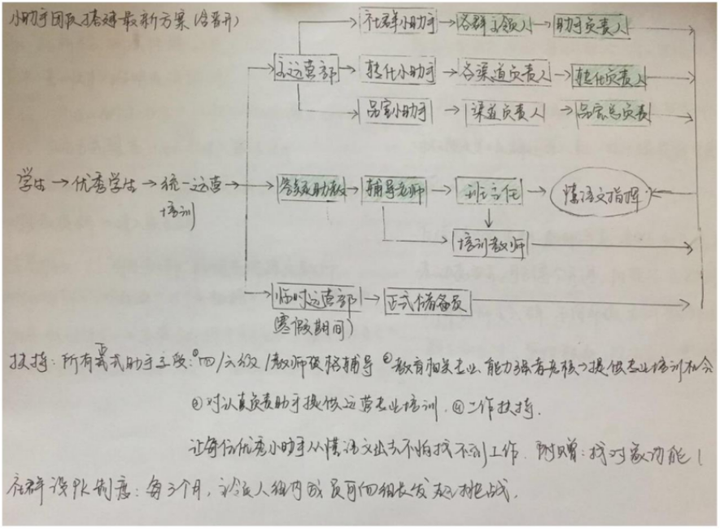 小助手团队搭建最新方案(含晋升)
社群小助手 各群主领人 助手负责人
主运营部 转化小助手 各渠道负责人 转化负责人
品宣小助手 渠道负责人 品宣总负责
学生 优秀学生 统一运营培训 各级助教 辅导老师 班主任 情语文指挥
培训教师
临时运营部(寒假期间) 正式储备员
扶持:所有正式助手主线:①四/六级/教师资格辅导 ②教育相关专业,能力强者考核 提供专业培训机会
③对认真负责助手提供运营专业培训. ④工作扶持.
让每位优秀小助手从情语文出去不怕找不到工作. 附赠:找对象功能!
社群设PK制度:每3个月,主领人组内成员可向组长发起挑战.